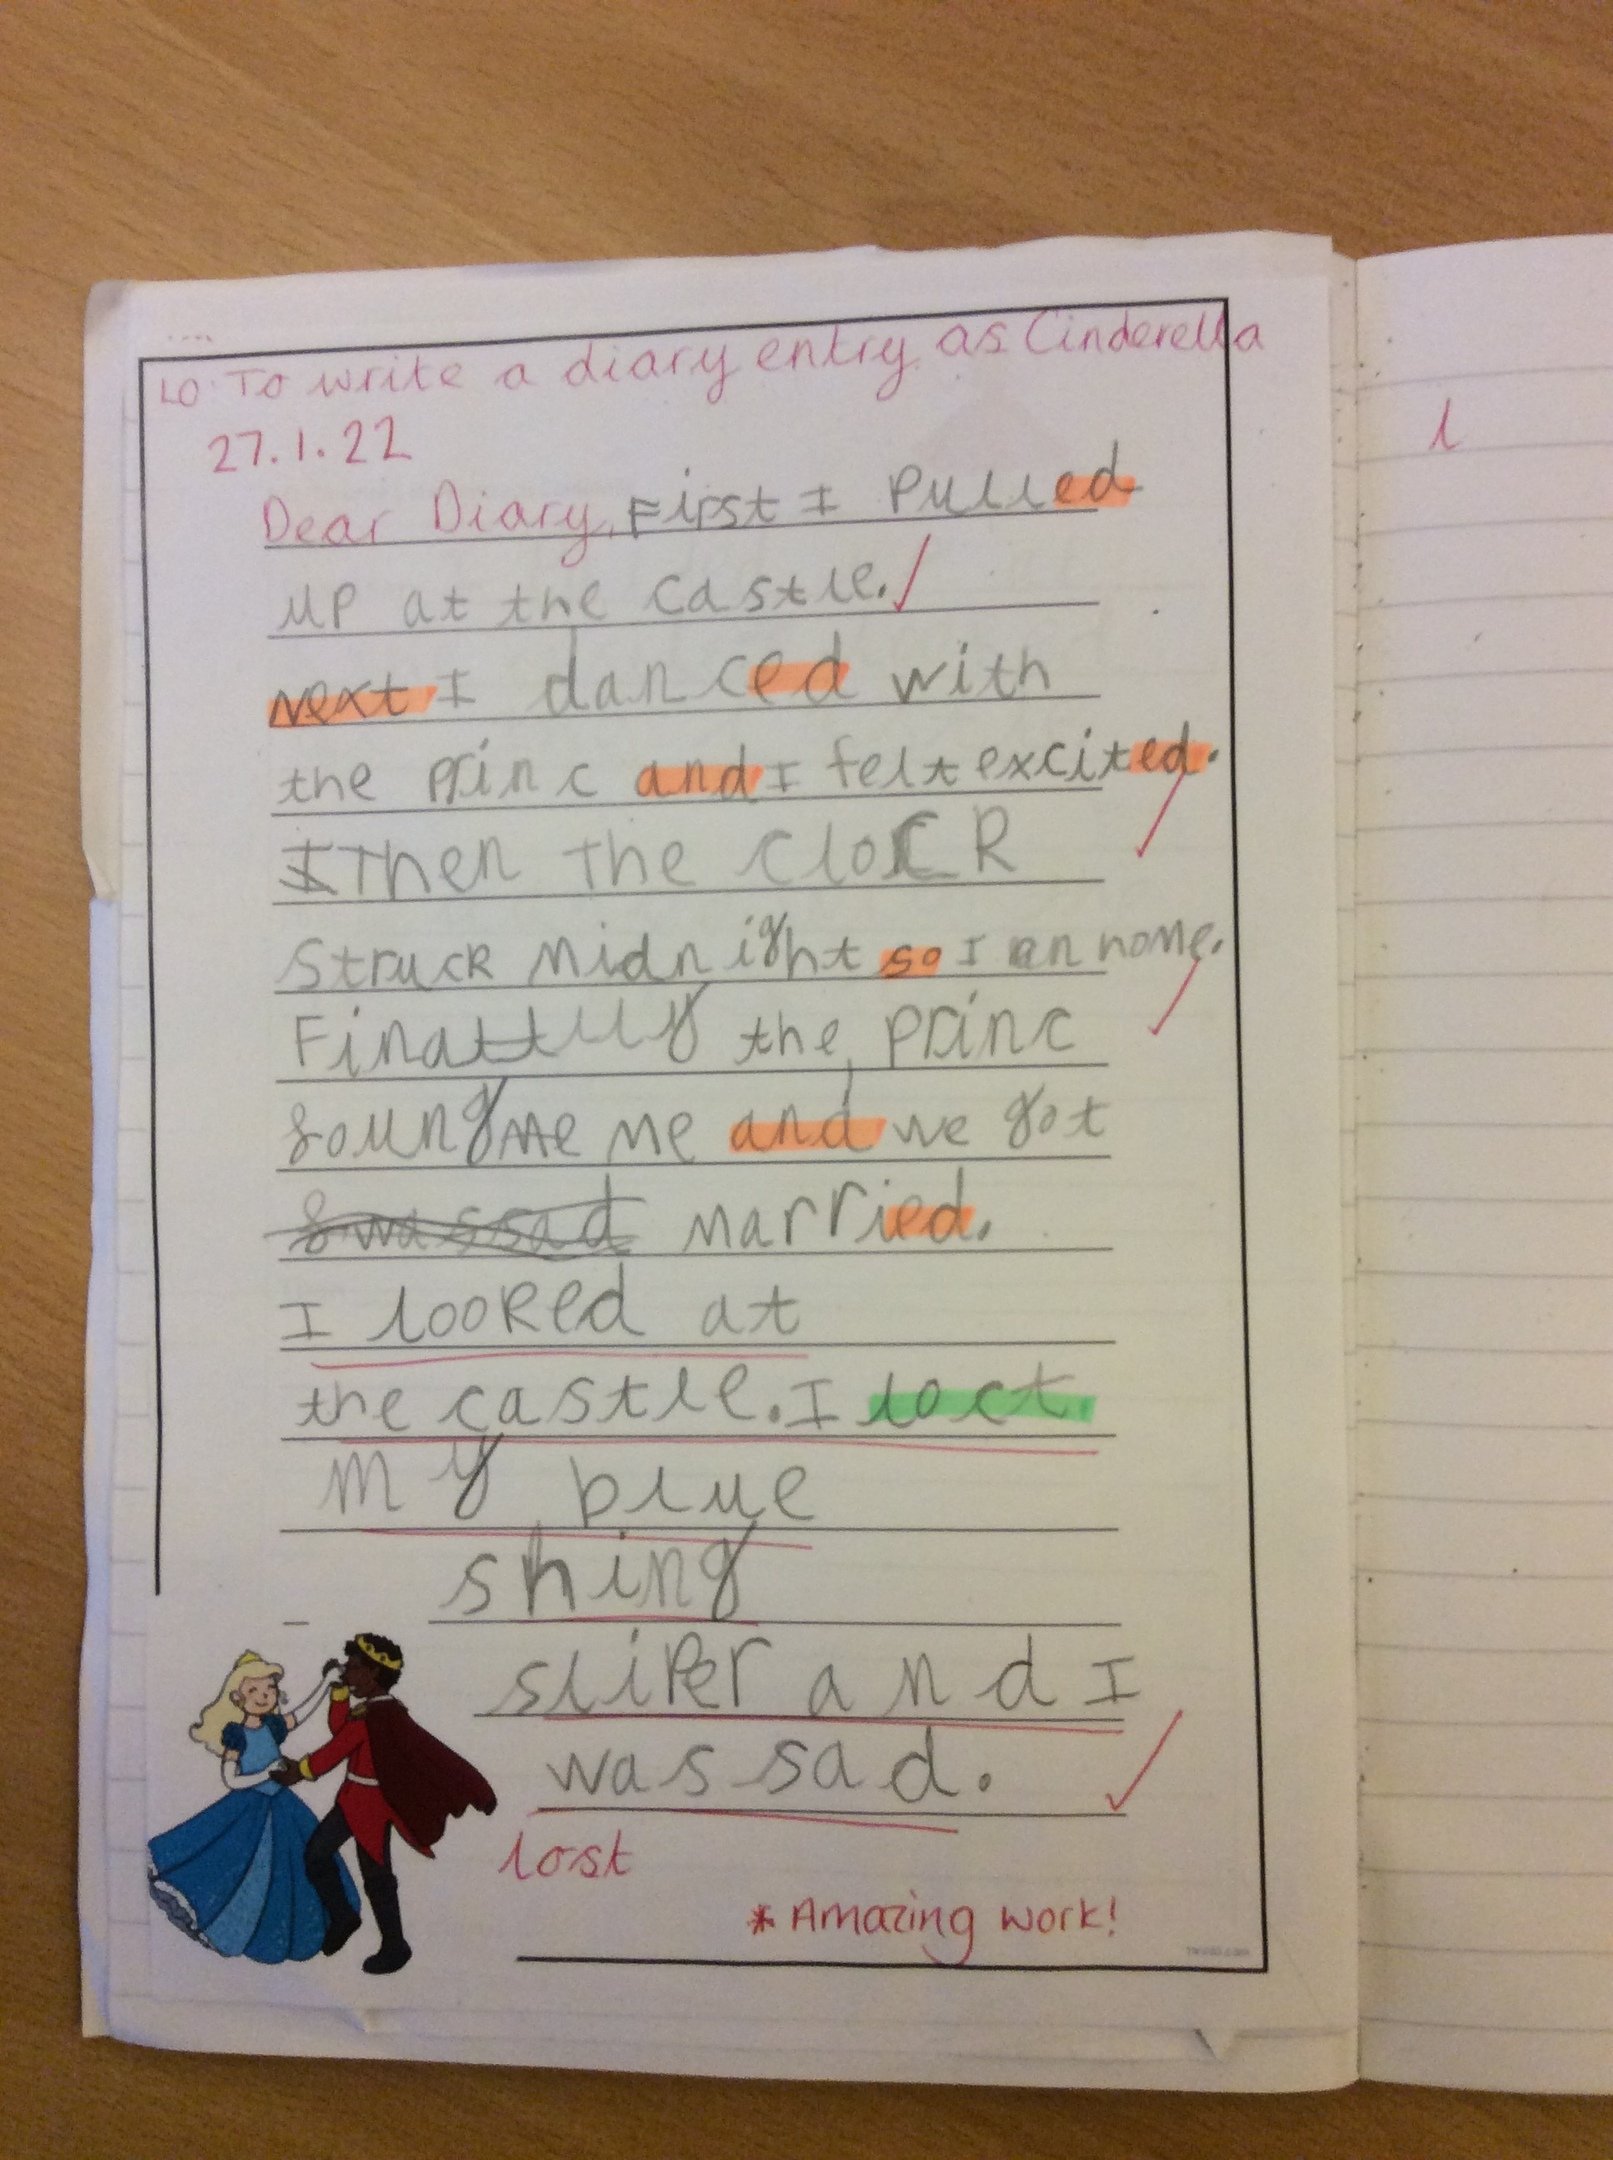 LO: To write a diary entry as Cinderella
27.1.22
Dear Diary, First I pulled
up at the castle.
next I danced with
the princ and I felt excited.
I Then The clock
struck midnight so I ran home.
Finattlly the princ
foung me me and we got
& was sad married.
I looked at
the castle. I loct
my blue
shing
sliper and I
was sad.
lost
* Amazing work!
l